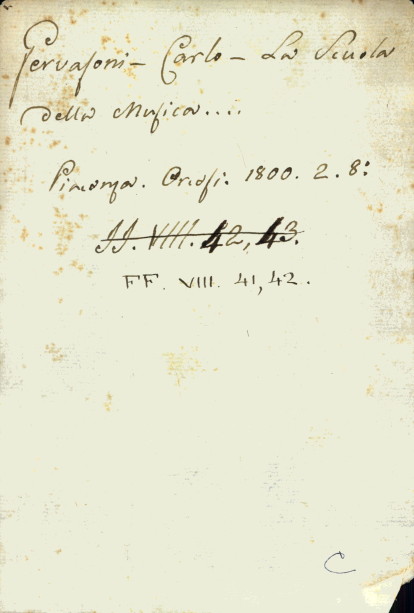 Gervasoni - Carlo - La Scuola
della Musica....
Piacenza. Orcesi. 1800. 2. 8:
JJ. VIII. 42, 43.
FF. VIII. 41, 42.
C